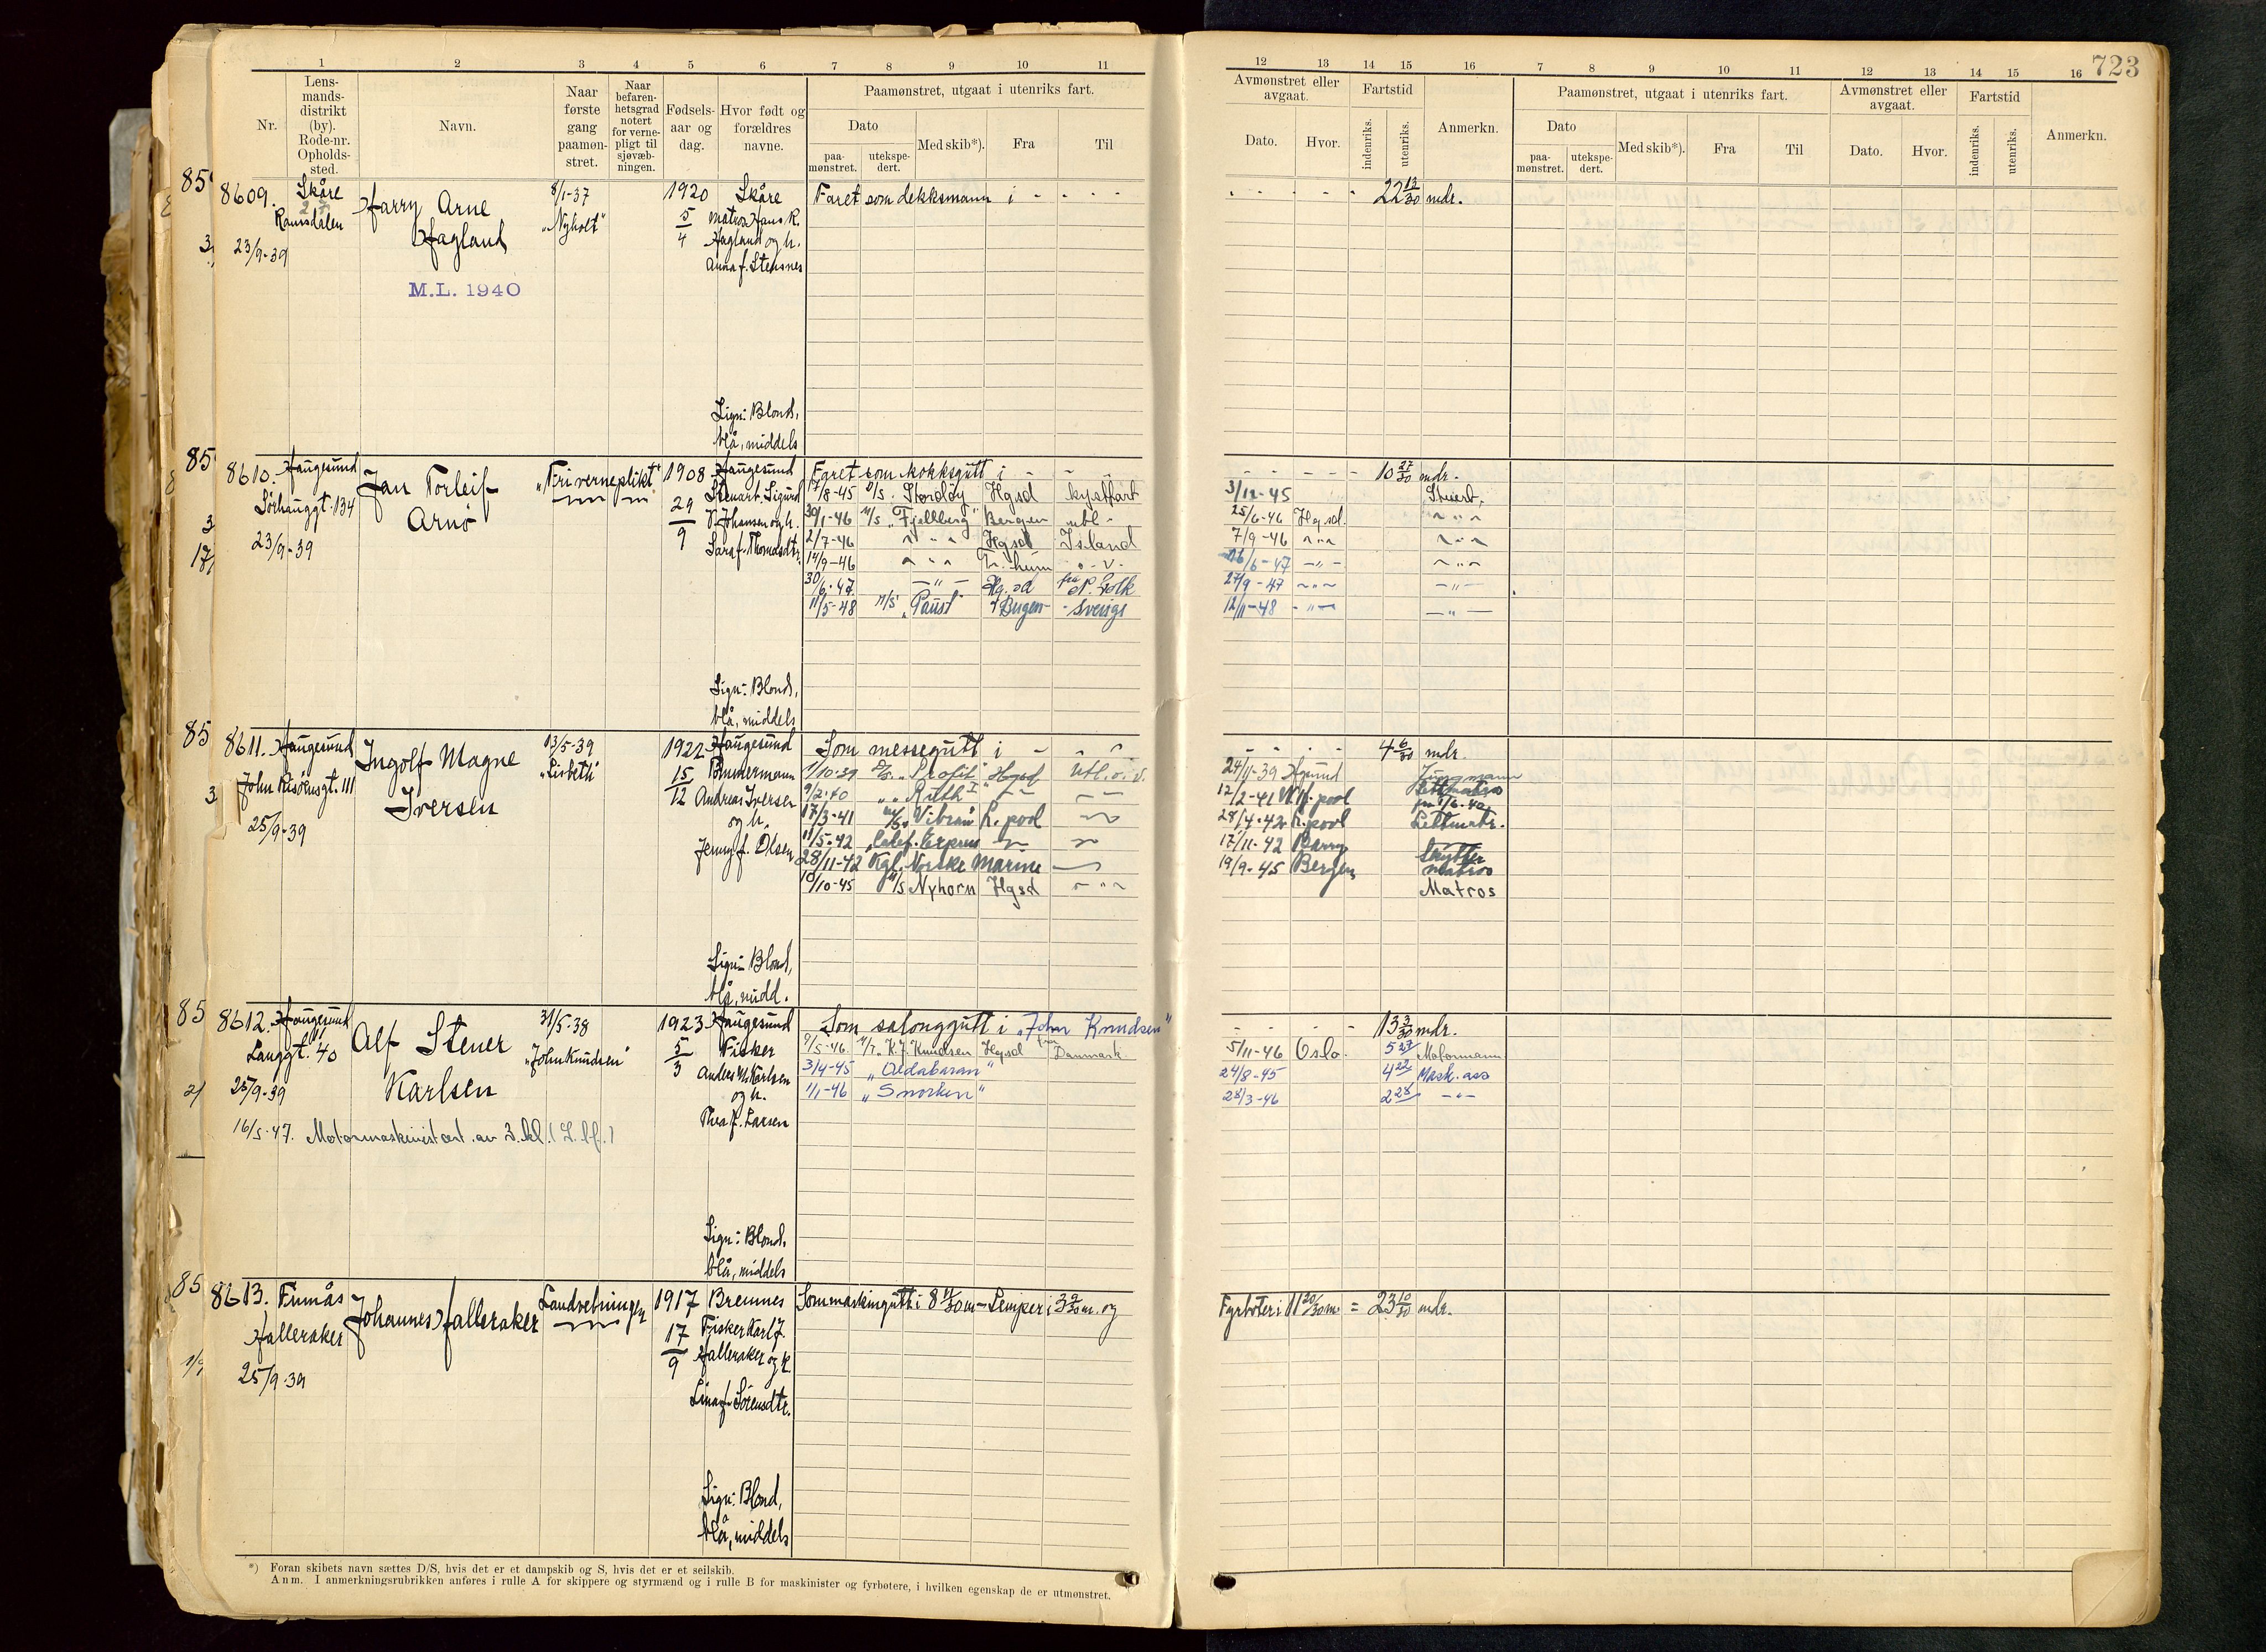 723
1 2 3 4 5 6 7 8 9 10 11
12 13 14 15 16 7 8 9 10 11 12 13 14 15 16
Nr.
Lens-
mands-
distrikt
(by).
Rode-nr.
Opholds-
sted.
Navn.
Naar
første
gang
paamøn-
stret.
Naar
befaren-
hetsgrad
notert
for verne-
pligt til
sjøvæb-
ningen.
Fødsels-
aar og
dag.
Hvor født og
forældres
navne.
Paamønstret, utgaat i utenriks fart.
Dato
paa-
mønstret.
utekspe-
dert.
Med skib*).
Fra
Til
Avmønstret eller
avgaat.
Dato.
Hvor.
Fartstid
indenriks.
utenriks.
Anmerkn.
Paamønstret, utgaat i utenriks fart.
Dato
paa-
mønstret.
utekspe-
dert.
Med skib*).
Fra
Til
Avmønstret eller
avgaat.
Dato.
Hvor.
Fartstid
indenriks.
utenriks.
Anmerkn.
85
8609. Skåre
Ramsdalen
23/9-39
Harry Arne
Hagland
M.L. 1940
8/1-37
"Nyholt"
1920
5/4
Skåre
Matros Hans K.
Hagland og h.
Anna f. Stensnes
Sign: Blond,
blå, middels
Faret som dekksmann i - - - - -
- - - - - 22 13/30 mdr.
85
8610. Haugesund
Sørhauggt. 134
23/9-39
Jan Torleif
Arnø
"Fri verneplikt"
1908
29/9
Haugesund
Stuart Sigurd
Johansen og h.
Sara f. Thomasdtr.
Sign: Blond,
blå, middels
Faret som kokksgutt i - - -
- - - - - 10 27/30 mdr.
17/8-45 D/S. Stordøy Hgsd kystfart
3/12-45 Stuert,
30/1-46 M/S "Fjellberg" Bergen utl -
25/6-46 Hgsd. - " -
2/7-46 - " - Hgsd Island
7/9-46 - " - - " -
14/9-46 - " - Tr.heim - " -
26/6-47 - " - - " -
30/6-47. - " - Hg.sd
27/9-47 - " - - " -
11/5-48 M/S "Faust" Bergen - Sverige
12/11-48 - " - - " -
85
8611. Haugesund
John Risøensgt. 111
25/9-39
Ingolf Magne
Iversen
13/5-39
"Lisbeth"
1922
15/12
Haugesund
Andreas Iversen
og h.
Jenny f. Olsen
Sign: Blond,
blå, midd.
Som messegutt i - - -
- - - - 4 6/30 mdr.
1/10-39 D/S. "Profit" Hgsd Utl.
24/11-39 Hgsund Jungmann
9/2-40 " " Ruth I"
12/2-41 L.pool Lettmatros
fra 1/6-40
17/3-41 M/S "Vibran" L.pool
28/4-42 L.pool Lettmatr.
11/5-42 "Calif. Express"
17/11-42 Barry
28/11-42 Kgl. Norske Marine
19/9-45 Bergen matros
10/10-45 M/S Nyhorn Hgsd - " -
Matros
85
8612. Haugesund
Langgt. 40
25/9-39
Alf Stener
Karlsen
31/5-38
"John Knudsen"
1923
5/3
Haugesund
Fisker
Anders M. Karlsen
og h.
Thea f. Larsen
16/5-47. Motormaskinist cert. av 3. kl.
Sign: Blond,
blå, middels
Som salonggutt i "John Knudsen"
- - - - 13 3/30 mdr.
9/5-46. M/T. "K. J. Knudsen Hgsd fra Danmark
5/11-46 Oslo. 5 27 Motormann
3/4-45 "Aldabaran"
24/8-45 4 22 Mask. ass
1/1-46 "Snorken"
28/3-46 2 28 - " -
85
8613. Finnås
Halleraker
25/9-39
Johannes Halleraker
Landvetningen
1917
17/9
Bremnes
Fisker Karl J.
Halleraker og h.
Lina f. Sørensdtr.
Sign: Blond,
blå, middels
Som maskingutt i 8 11/30 m - Lemper i 3 9/30 m. og
Fyrbøter i 11 20/30 m. = 23 10/30 mdr.
*) Foran skibets navn sættes D/S, hvis det er et dampskib og S, hvis det er et seilskib.
Anm. I anmerkningsrubrikken anføres i rulle A for skippere og styrmænd og i rulle B for maskinister og fyrbøtere, i hvilken egenskap de er utmønstret.